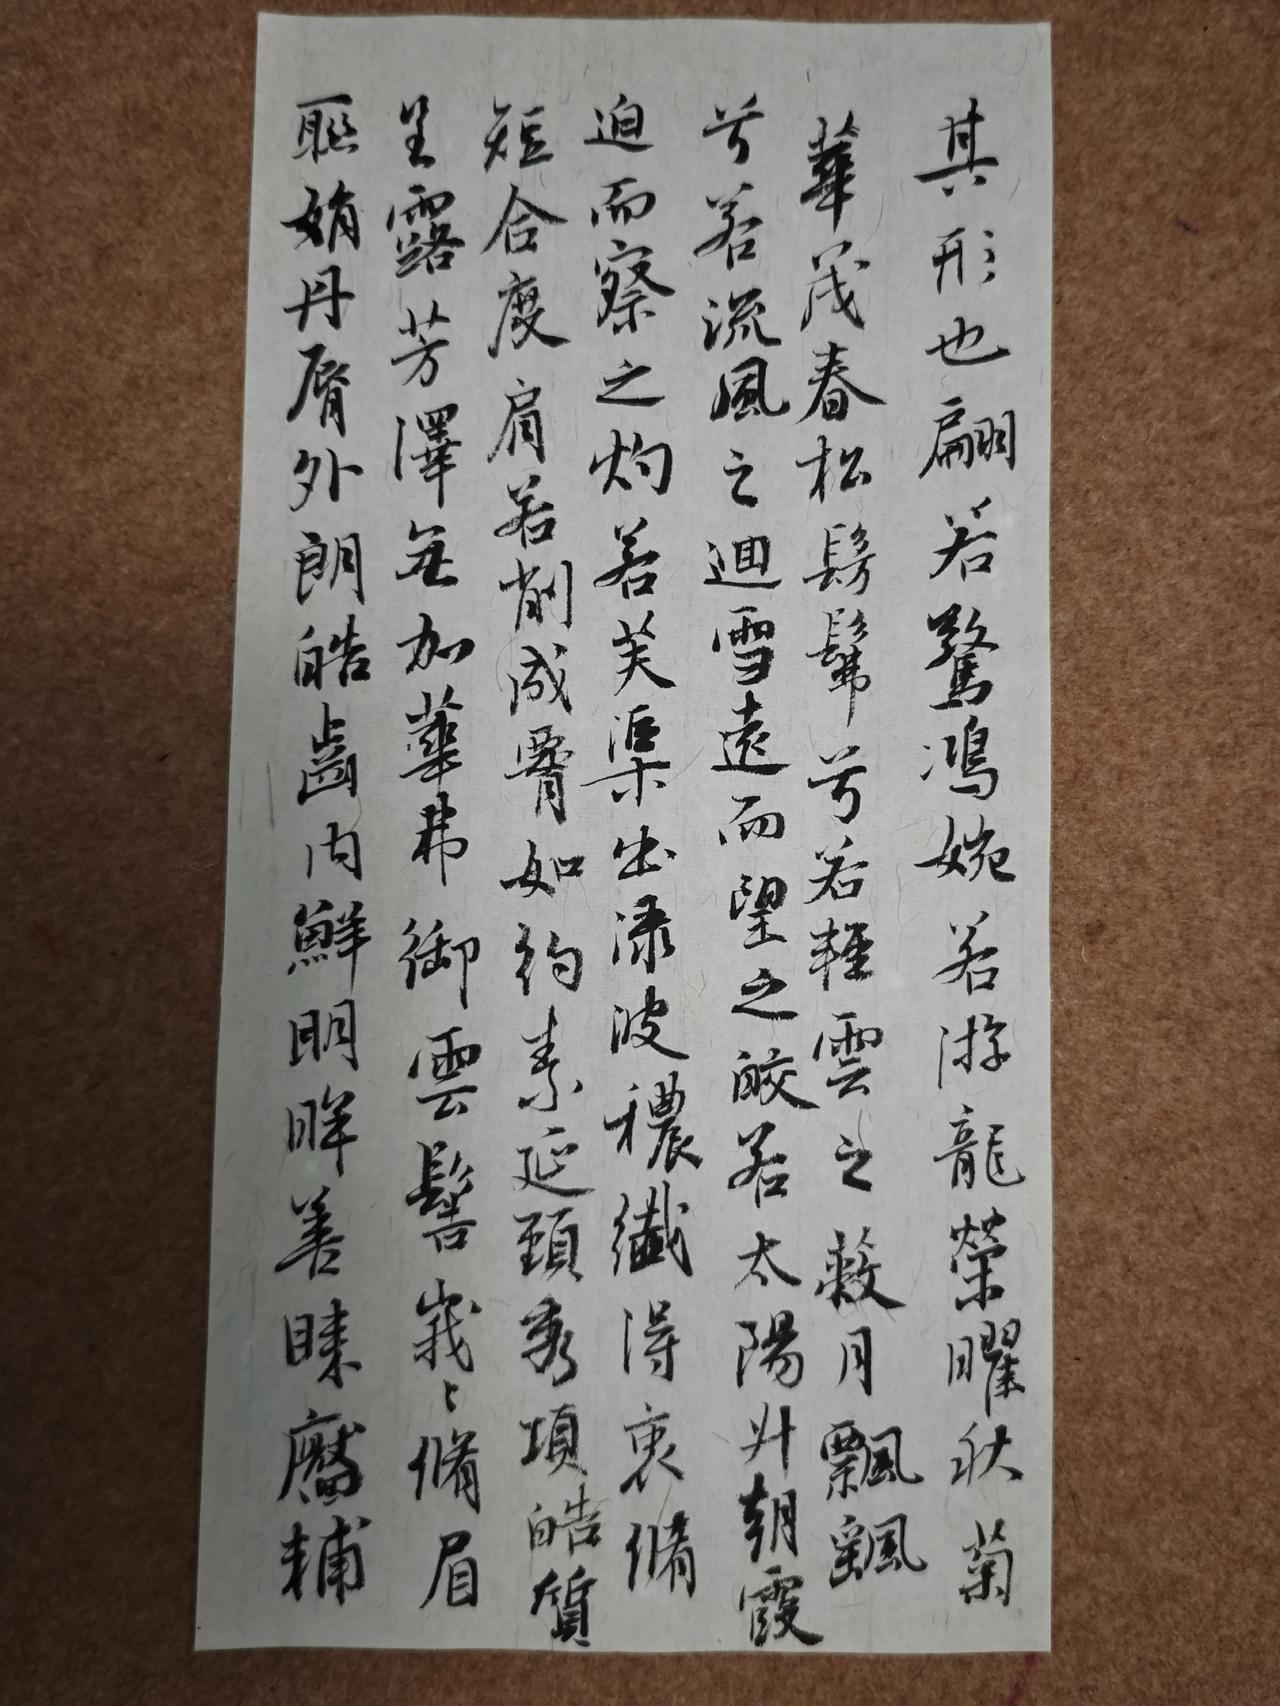 其形也翩若驚鴻婉若游龍榮曜秋菊
華茂春松髣髴兮若輕雲之蔽月飄颻
兮若流風之迴雪遠而望之皎若太陽升朝霞
迫而察之灼若芙渠出淥波穠纖得衷脩
短合度肩若削成腰如約素延頸秀項皓質
呈露芳澤無加華弗御雲髻峩〻脩眉
聯娟丹脣外朗皓齒内鮮明眸善睞靨輔